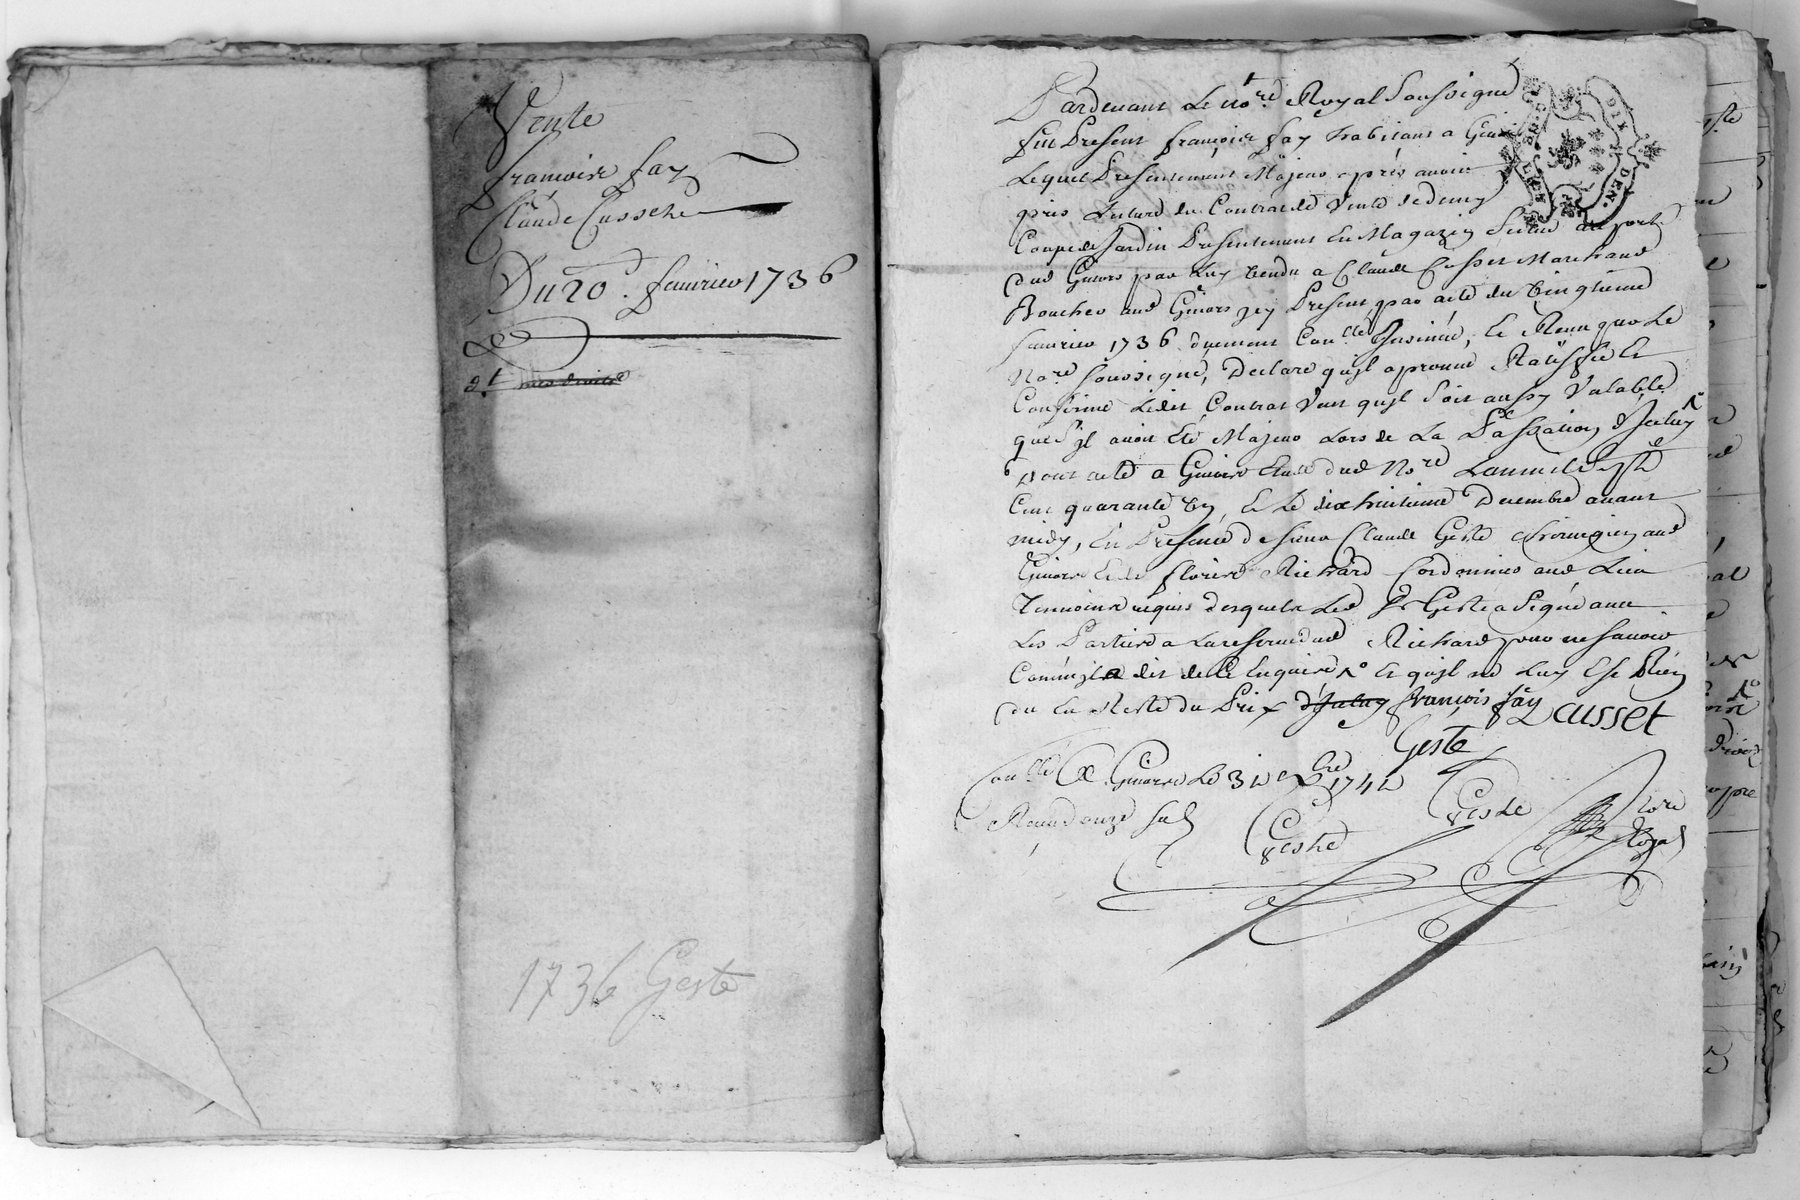 Vente
francoise fay
Claude Cussete
Du 20. feuvrieu 1736
1736 Geste
Pardenant Le no.re Royal Soussigné
fut Present françois fay habitant a Givors
Lequel Presentement Majeur apres avoir
pris Lecture du Contract de Vente de demy
Coupe de Jardin Presentement En Magazin Scitué au port
dud Givors par luy vendu a Claude Cusset Marchand
Boucher aud Givors jcy Present, par acte du vingtieme
feuvrieu 1736 duement Con.llé Jnsinué, Et Receu par Le
No.re soussigné, Declare qu'jl aprouve Ratiffie Et
Confirme Ledit Contrat Veut qu'jl Soit aussy Valable
que S'jl avoit Eté Majeur Lors de La Passation d'jceluy
Dont acte a Givors Etude dud No.re L'an mil sept
Cent quarante un, Et Le dix huitieme Decembre avant
midy, En Presence de sieur Claude Geste Chirurgien aud
Givors Et de fleurie Richard Cordonnier aud Lieu
Temoins requis desquels Led Sr Geste a Signé avec
Les Parties a La reserve dud Richard pour ne savoir
Comme jl a dit de Ce Enquis Et qu'jl ne Luy Est Rien
du En Reste du Prix d'jceluy françois fay Cusset
Geste
Con.llé A Givors Le 31 Xbre 1741
Receu douze sols
Geste
Geste
No.re
Royal
DIX DEN.